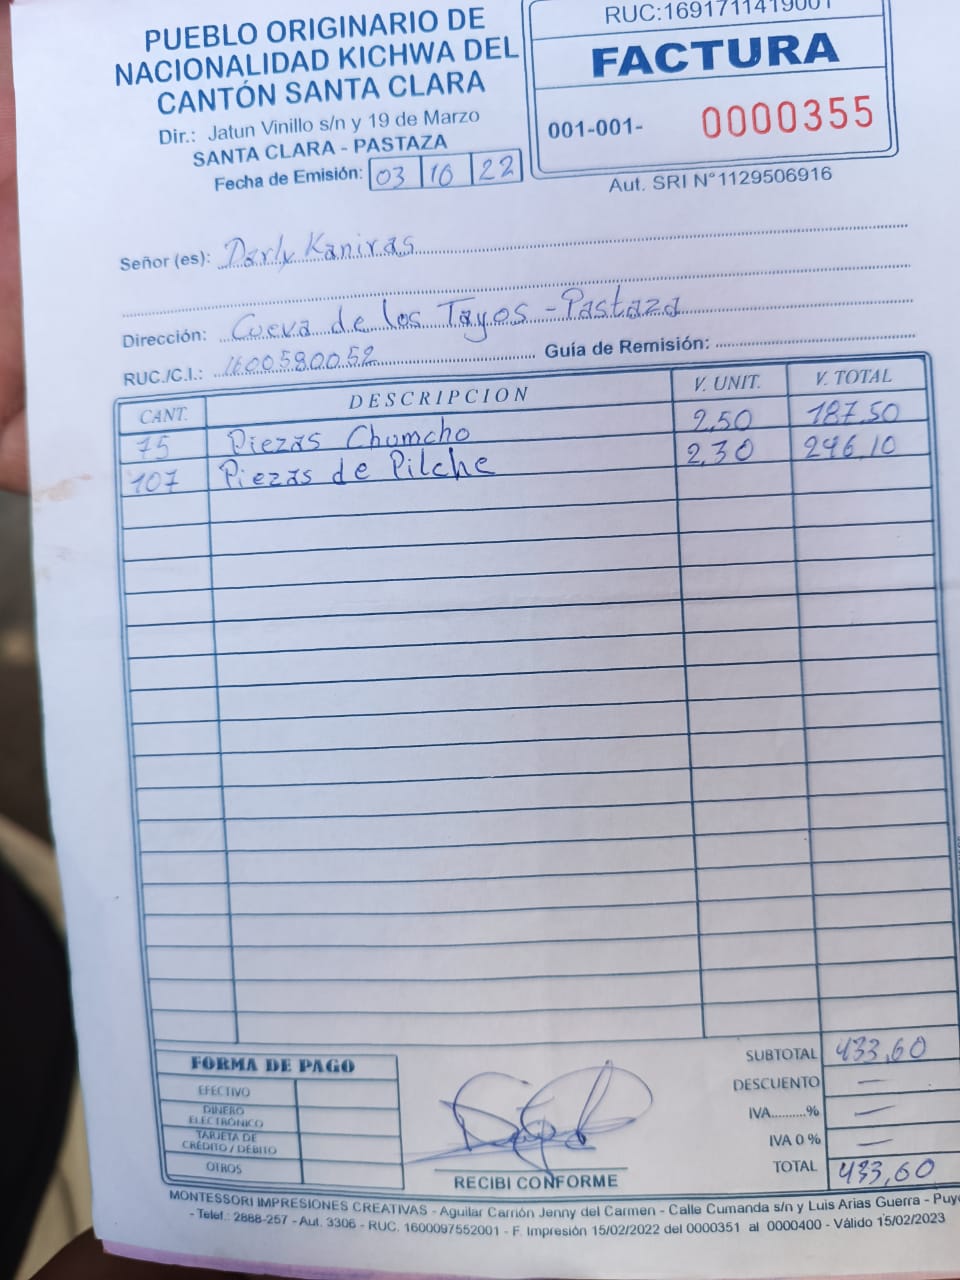 PUEBLO ORIGINARIO DE
NACIONALIDAD KICHWA DEL
CANTÓN SANTA CLARA
Dir.: Jatun Vinillo s/n y 19 de Marzo
SANTA CLARA - PASTAZA
Fecha de Emisión: 03 10 22
RUC:1691711419001
FACTURA
001-001- 0000355
Aut. SRI N°1129506916
Señor (es): Darly Kaniras
Dirección: Cueva de los Tayos - Pastaza
RUC./C.I.: 1600580052 Guía de Remisión:
CANT. DESCRIPCION V. UNIT. V. TOTAL
75 Piezas Chumcho 2,50 187.50
107 Piezas de Pilche 2,30 246,10
FORMA DE PAGO
EFECTIVO
DINERO ELECTRÓNICO
TARJETA DE CRÉDITO / DÉBITO
OTROS
RECIBI CONFORME
SUBTOTAL 433,60
DESCUENTO —
IVA.........% —
IVA 0 % —
TOTAL 433,60
MONTESSORI IMPRESIONES CREATIVAS - Aguilar Carrión Jenny del Carmen - Calle Cumanda s/n y Luis Arias Guerra - Puyo
- Telef.: 2888-257 - Aut. 3306 - RUC. 1600097552001 - F. Impresión 15/02/2022 del 0000351 al 0000400 - Válido 15/02/2023